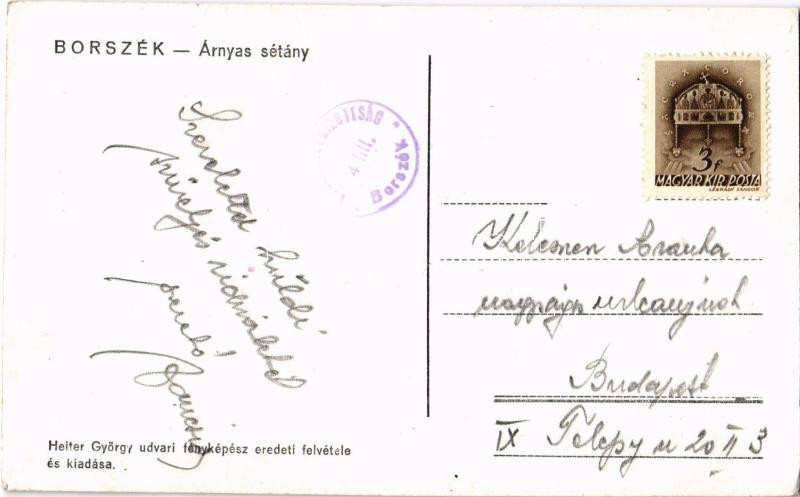 BORSZÉK — Árnyas sétány
Szeretettel küldi
szívélyes üdvözletét
szerető
IZOTTSÁG
4 III.
Borszék
SACRA CORONA
3f
MAGYAR KIR. POSTA
LÉGRÁDY SÁNDOR
Kelemen Aranka
nagysága
Budapest
IX Telepy u 20 II 3
Heiter György udvari fényképész eredeti felvétele
és kiadása.